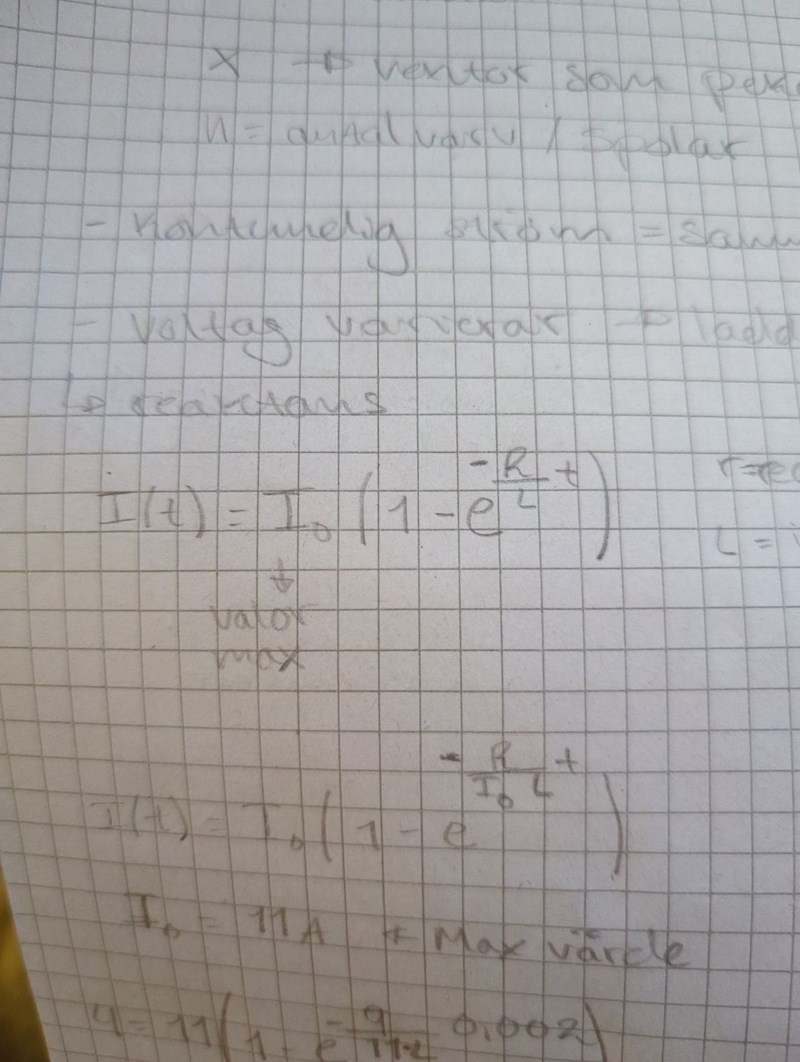 X → vektor som pek
N = antal varv / spolar
- kontinuelig ström = samm
- Voltag varierar → ladd
↳ reaktans
I(t) = I₀ (1 - e^(-R/L t))
L =
↓
valor
max
I(t) = I₀ (1 - e^(-R/(I₀ L) t))
I₀ = 11A ← Max värde
4 = 11(1 - e^(-9/(11·L) 0,002))